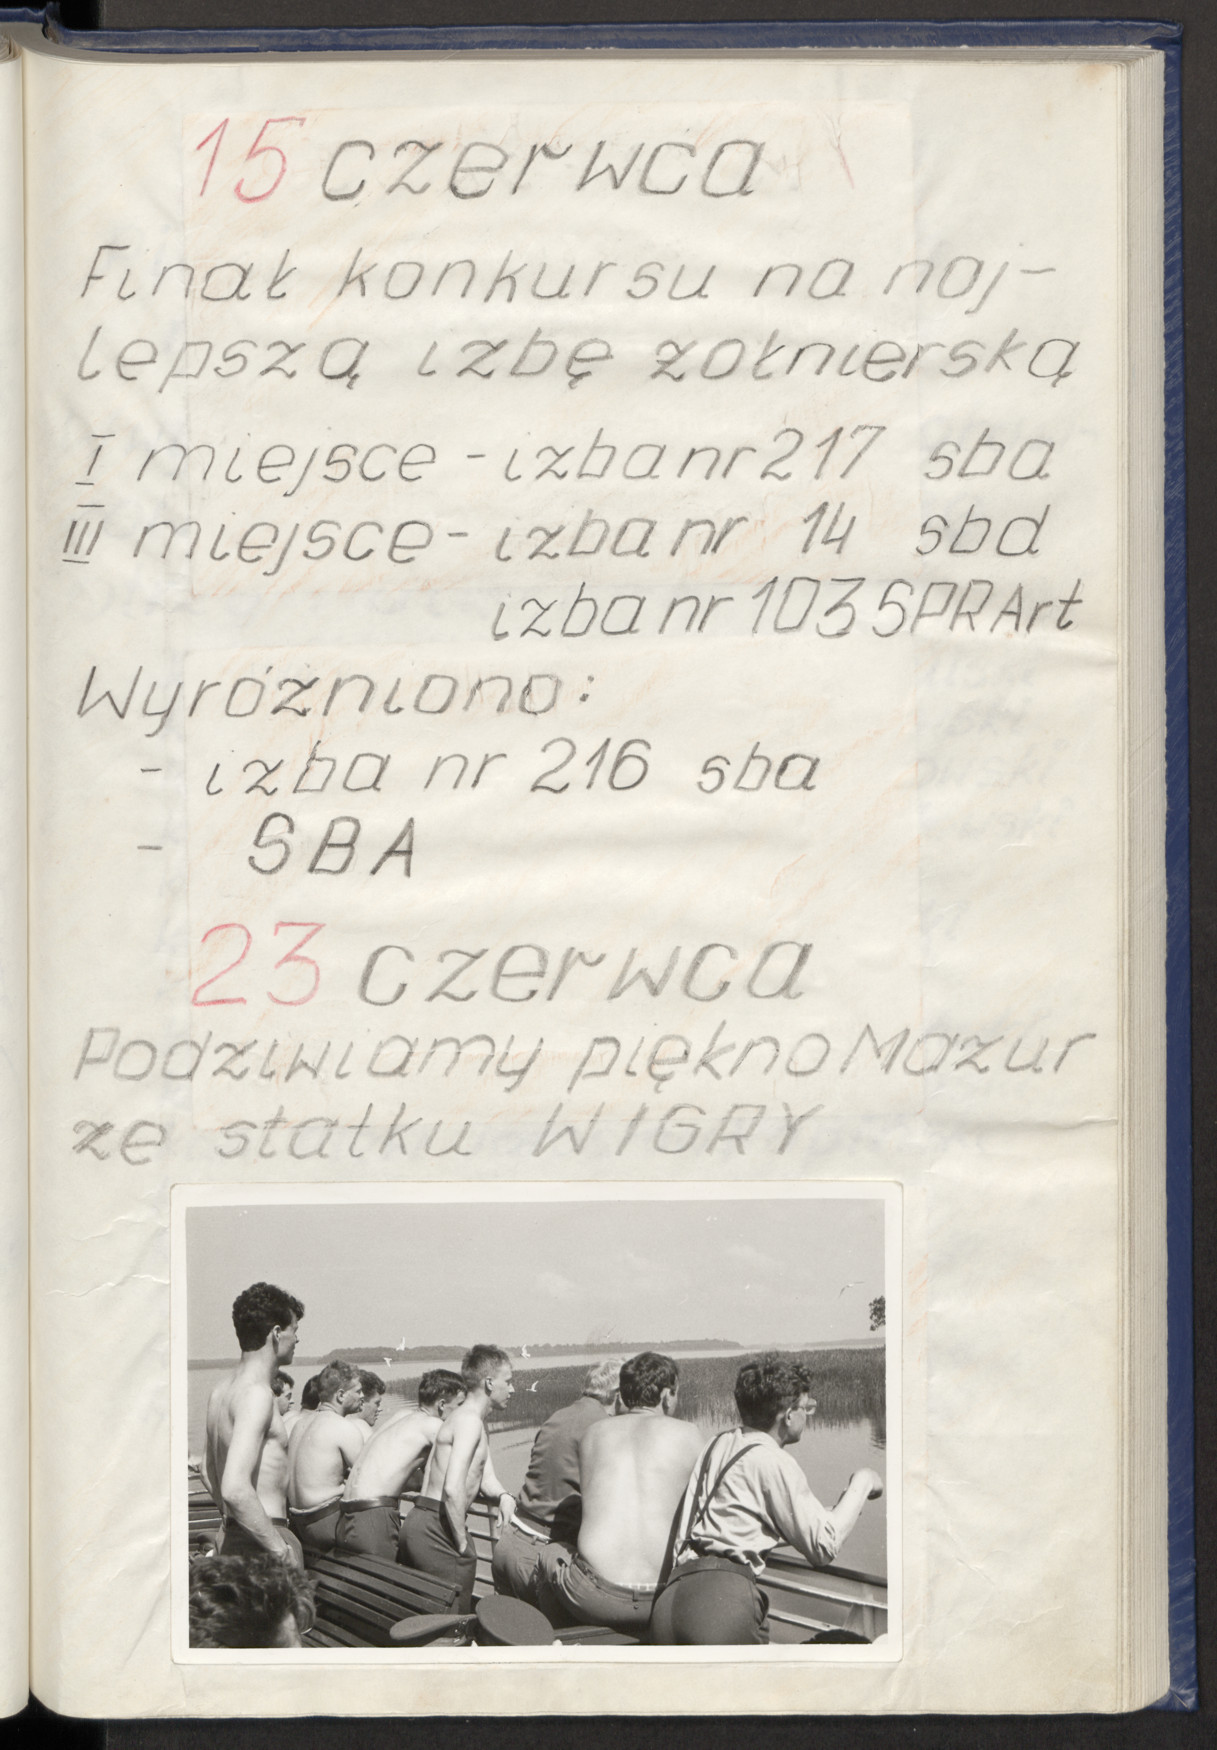 15 czerwca
Finał konkursu na naj-
lepszą izbę żołnierską
I miejsce - izba nr 217 sba
III miejsce - izba nr 14 sbd
izba nr 103 SPR Art
Wyróżniono:
- izba nr 216 sba
- SBA
23 czerwca
Podziwiamy piękno Mazur
ze statku WIGRY